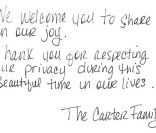 We welcome you to share
in our joy.
Thank you for respecting
our privacy during this
beautiful time in our lives.
The Carter Family